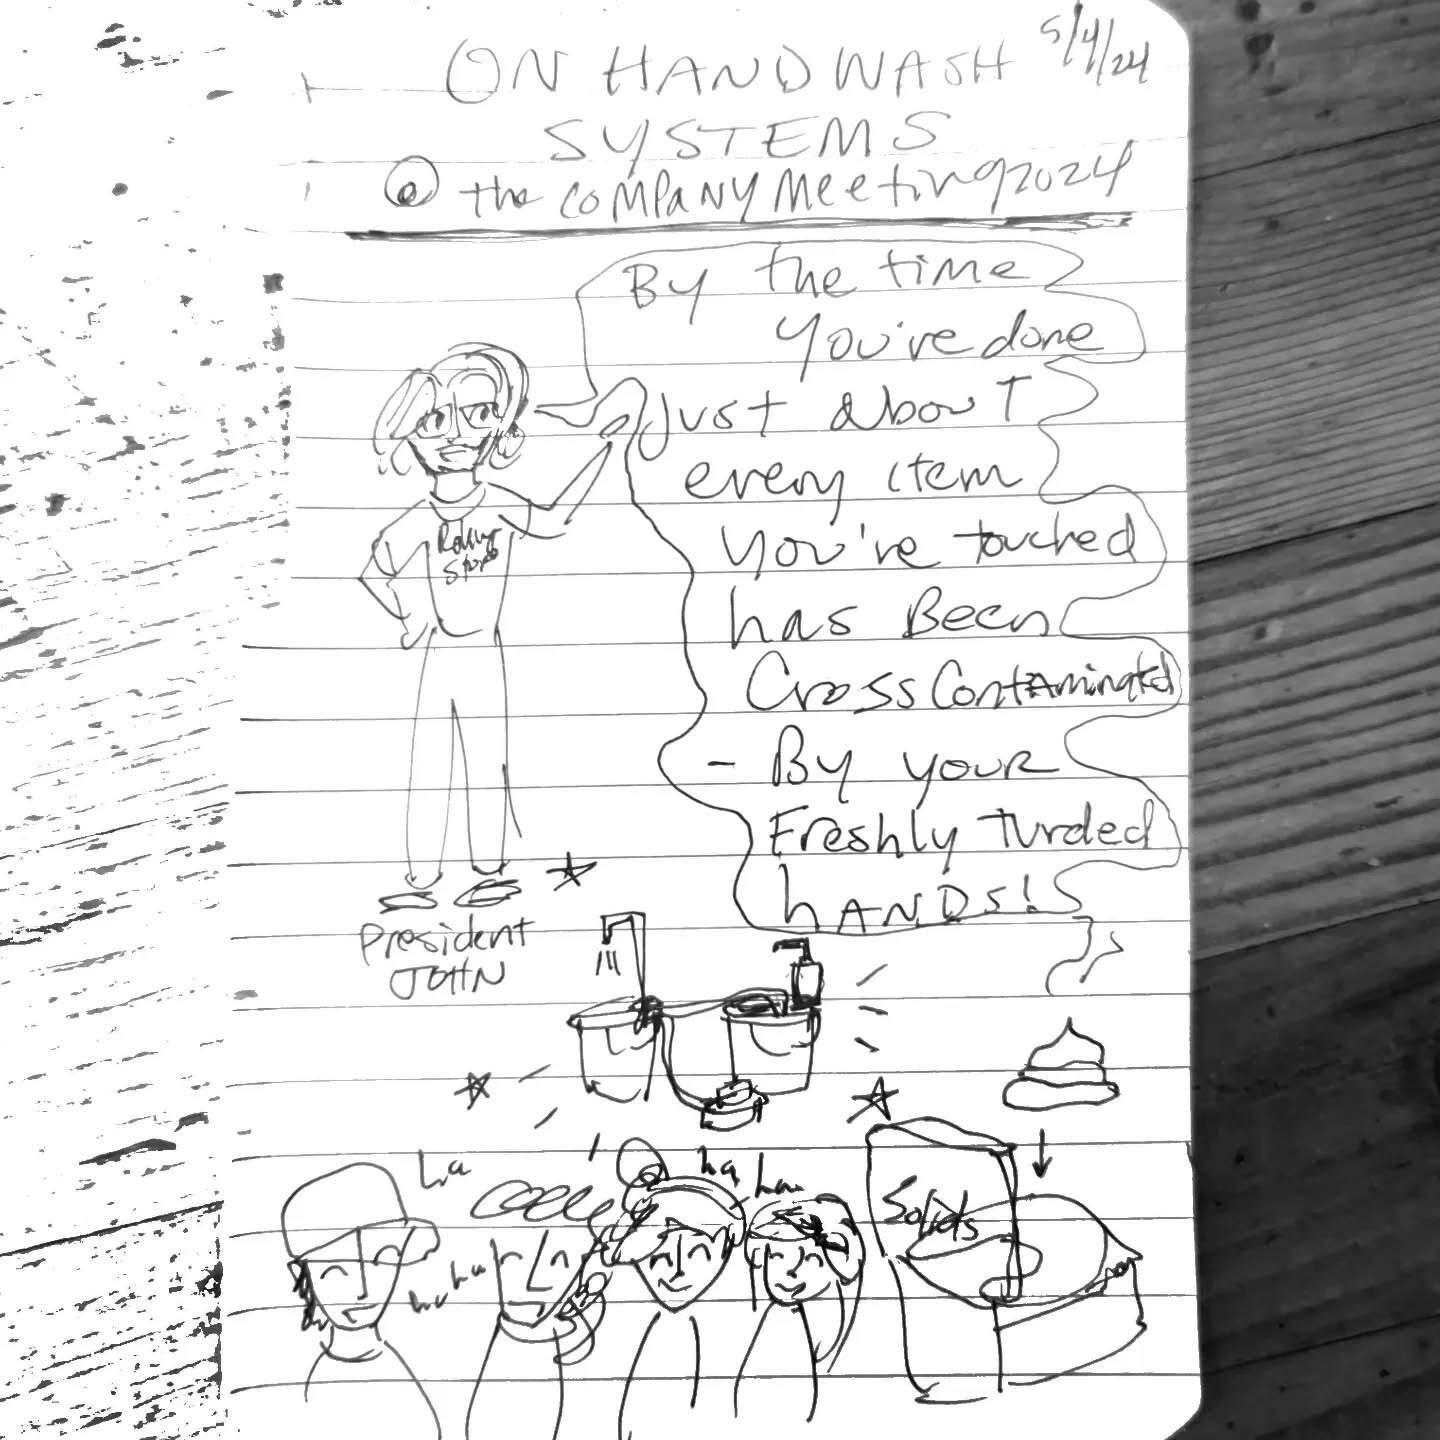 ON HANDWASH 5/4/24
SYSTEMS
@ the COMPANY MEETING 2024
By the time
you're done
Just about
every item
you're touched
has Been
Cross Contaminated
- By your
Freshly turded
hANDS!
President
JOHN
ha
ha
ha
ha
ha
Solids